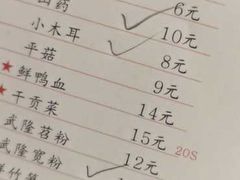 药 6元
小木耳 10元
平菇 8元
★鲜鸭血 9元
★干贡菜 14元
武隆苕粉 15元 20S
武隆宽粉 12元